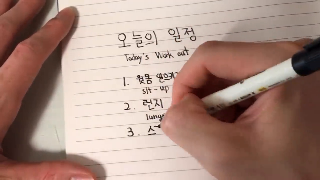 오늘의 일정
Today's Work out
1. 윗몸 일으키기
sit-up
2. 런지
lunge
3. 스